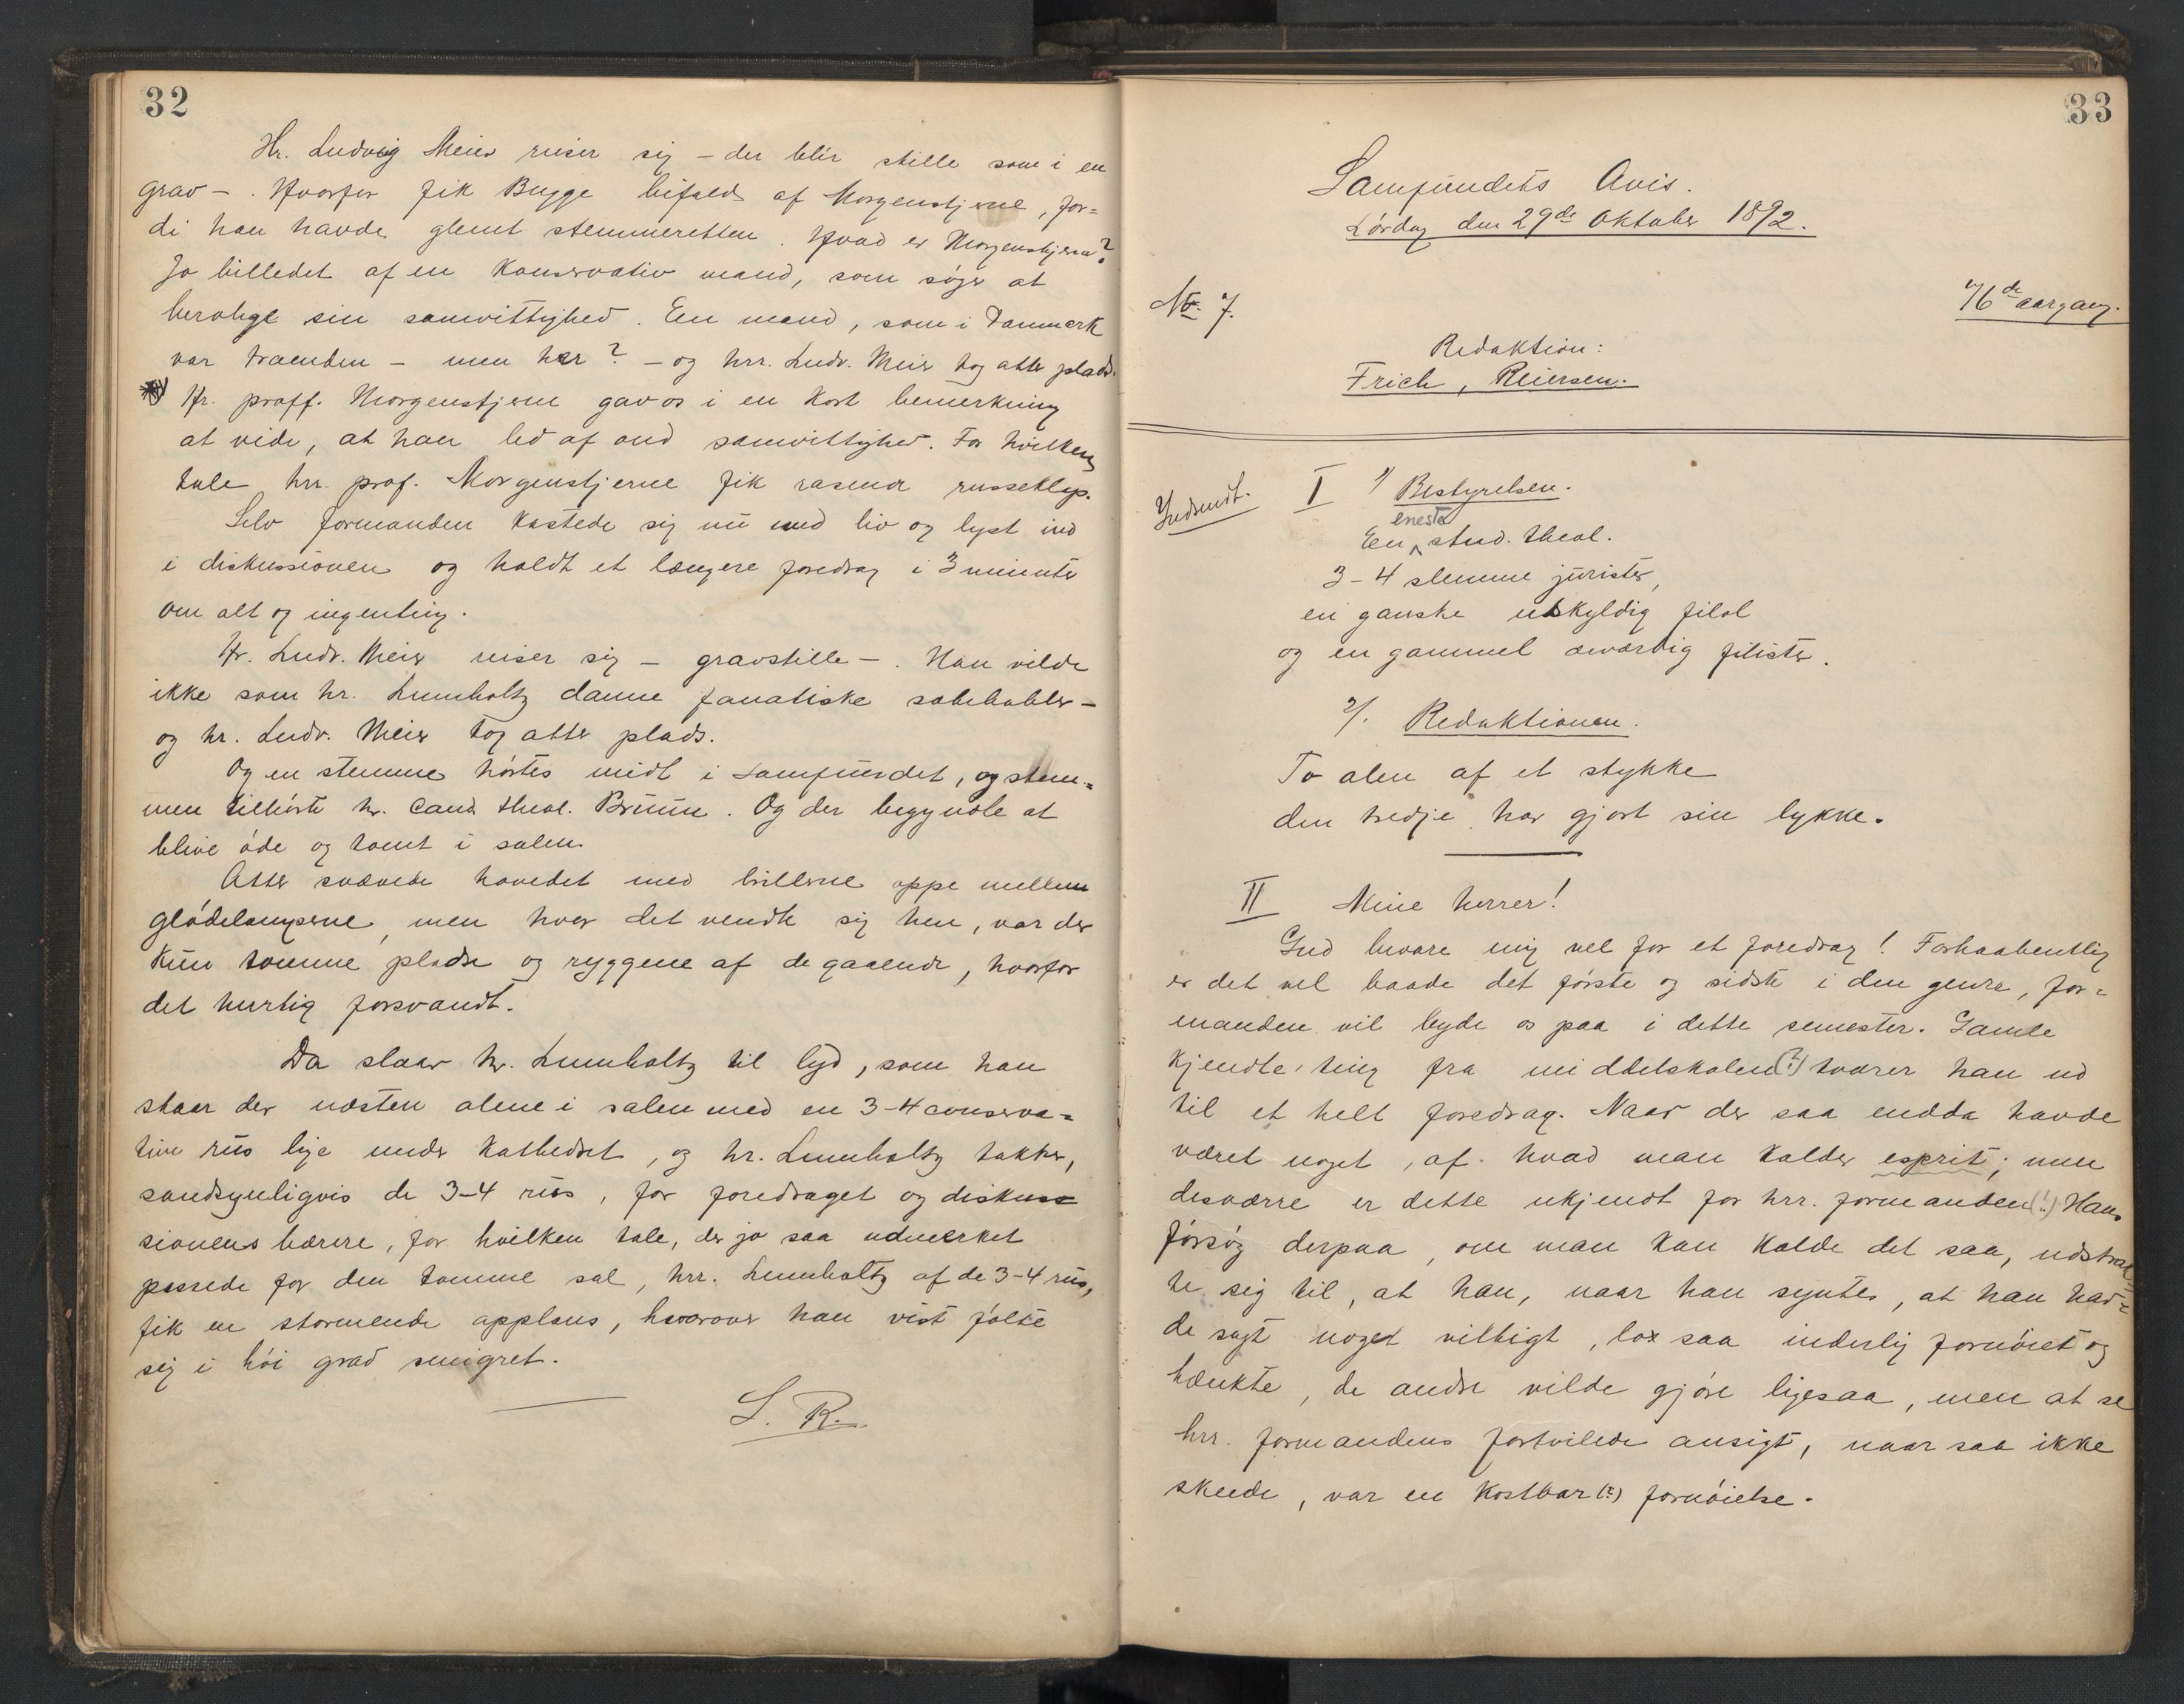 32
Hr. Ludvig Meier reiser sig – der blir stille som i en
grav – . Hvorfor fik Bugge bifald af Morgenstjerne, for=
di han havde glemt stemmeretten. Hvad er Morgenstjerne?
Jo billedet af en konservativ mand, som søger at
berolige sin samvittighed. En mand, som i Danmark
var traenden – men her? – og hrr. Ludv. Meier tog atter plads.
Hr. proff. Morgenstjerne gav os i en kort bemerkning
at vide, at han led af ond samvittighed. For hvilken
tale hrr. prof. Morgenstjerne fik rasende russeklap.
Selv formanden kastede sig nu med liv og lyst ind
i diskussionen og holdt et længere foredrag i 3 minuter
om alt og ingenting.
Hr. Ludv. Meier reiser sig – gravstille – . Han vilde
ikke som hr. Lumholtz danne fanatiske sæbebobler –
og hr. Ludv. Meier tog atter plads.
Og en stemme hørtes midt i samfundet, og stem=
men tilhørte hr. cand. theol. Bruun. Og der begyndte at
blive øde og tomt i salen.
Atter svævede hovedet med brillerne oppe mellem
glødelamperne, men hvor det vendte sig hen, var der
kun tomme pladse og ryggene af de gaaende, hvorfor
det hurtig forsvandt.
Da slaar hr. Lumholtz til lyd, som han
staar der næsten alene i salen med en 3–4 conserva=
tive rus lige under kathedret, og hr. Lumholtz takker,
sandsynligvis de 3–4 rus, for foredraget og diskus=
sionens bærere, for hvilken tale, der jo saa udmerket
passede for den tomme sal, hrr. Lumholtz af de 3–4 rus,
fik en stormende applaus, hvorover han vist følte
sig i høi grad smigret.
S. R.
33
Samfundets Avis.
Lørdag den 29de Oktober 1892.
No. 7.
76de aargang.
Redaktion:
Frich, Reiersen.
Indsendt.
I 1/ Bestyrelsen.
eneste
En stud. theol.
3–4 slemme jurister,
en ganske uskyldig filol
og en gammel ærværdig filister.
2/. Redaktionen.
To alen af et stykke
den tredje har gjort sin lykke.
II Mine herrer!
Gud bevare mig vel for et foredrag! Forhaabentlig
er det vel baade det første og sidste i den genre, for=
manden vil byde os paa i dette semester. Gamle
kjendte ting fra middelskolen(?) tværer han ud
til et helt foredrag. Naar der saa endda havde
været noget, af hvad man kalder esprit; men
desværre er dette ukjendt for hrr. formanden(!) Hans
forsøg derpaa, om man kan kalde det saa, udstrak=
te sig til, at han, naar han syntes, at han hav=
de sagt noget vittigt, lo saa inderlig fornøiet og
tænkte, de andre vilde gjøre ligesaa, men at se
hrr. formandens fortvilede ansigt, naar saa ikke
skeede, var en kostbar(?) fornøielse.